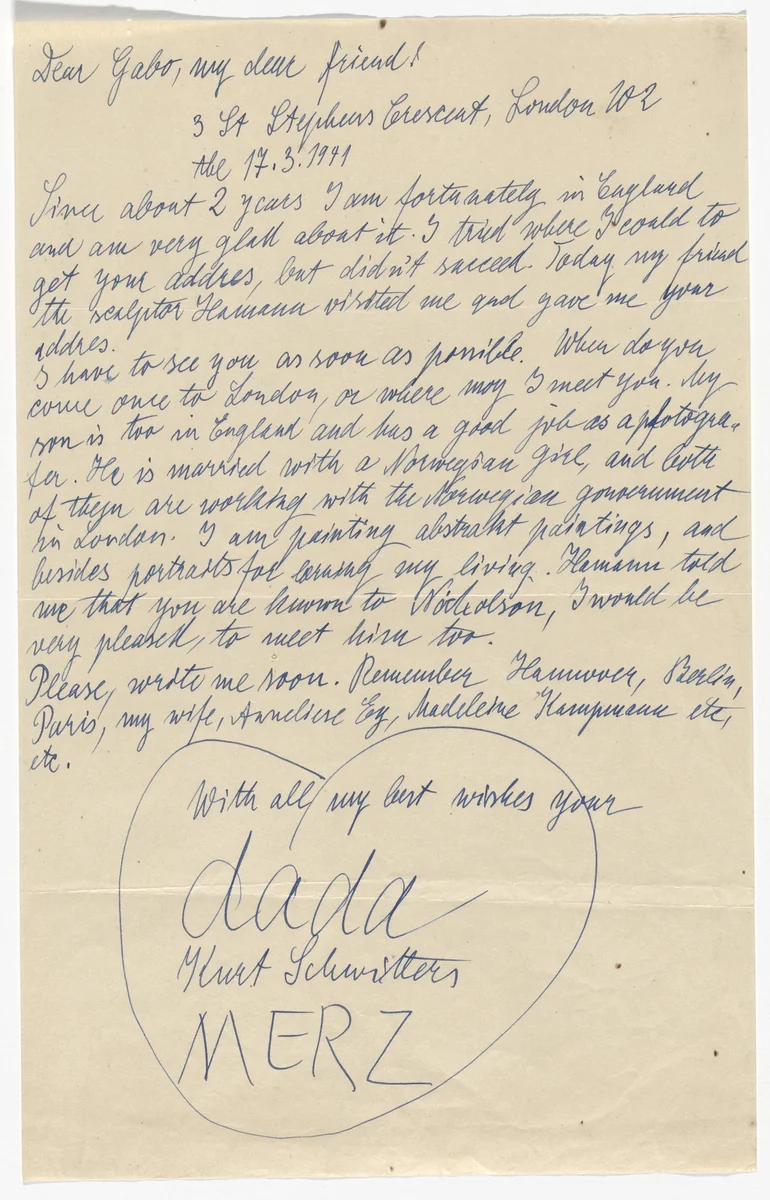 Dear Gabo, my dear friend!
3 St Stephens Crescent, London W2
the 17.3.1941
Since about 2 years I am fortunately in England
and am very glad about it. I tried where I could to
get your addres, but didn't succeed. Today my friend
the sculptor Hamann visited me and gave me your
addres.
I have to see you as soon as possible. When do you
come once to London, or where may I meet you. My
son is too in England and has a good job as a pfotogra-
fer. He is married with a Norwegian girl, and both
of them are working with the Norwegian gouvernment
in London. I am painting abstrakt paintings, and
besides portraits for earning my living. Hamann told
me that you are known to Nicholson, I would be
very pleased, to meet him too.
Please, write me soon. Remember Hannover, Berlin,
Paris, my wife, Anneliese Ey, Madeleine Kampmann etc,
etc.
With all my best wishes your
dada
Kurt Schwitters
MERZ